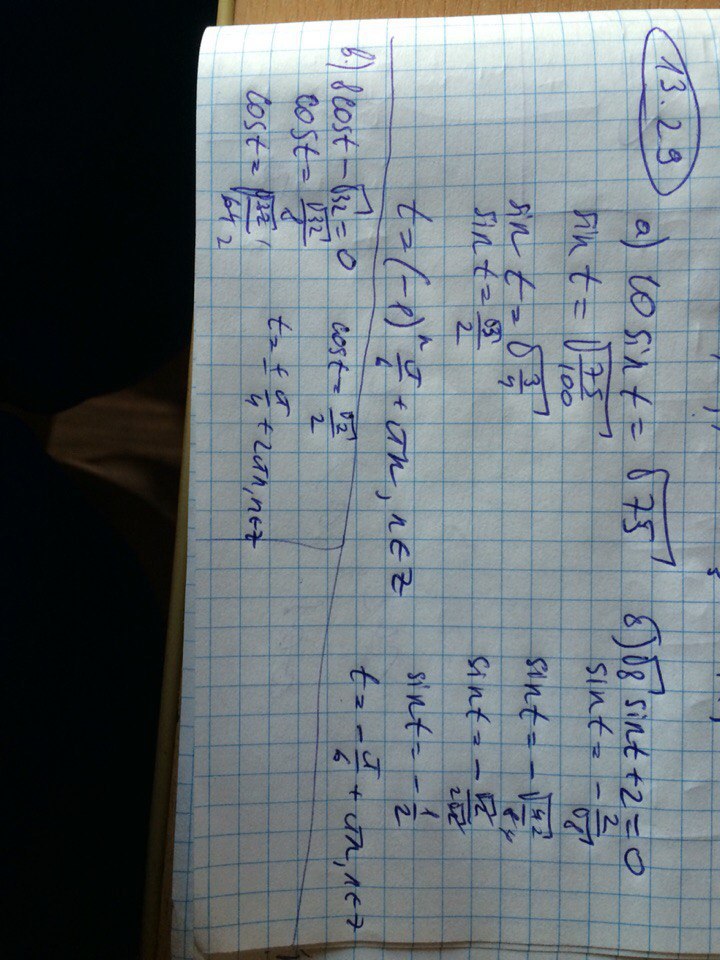 13.29
а) 10 sin t = √75
sin t = √(75/100)
sin t = √(3/4)
sin t = √3/2
t = (-1)ⁿ π/6 + πn, n ∈ Z
б) √8 sin t + 2 = 0
sin t = - 2/√8
sin t = -
sin t = -
sin t = - 1/2
t = - π/6 + πn, n ∈ Z
в) 8 cos t - √32 = 0
cos t = √32/8
cos t = √(32/64)
2
cos t = √2/2
t = ± π/4 + 2πn, n ∈ Z